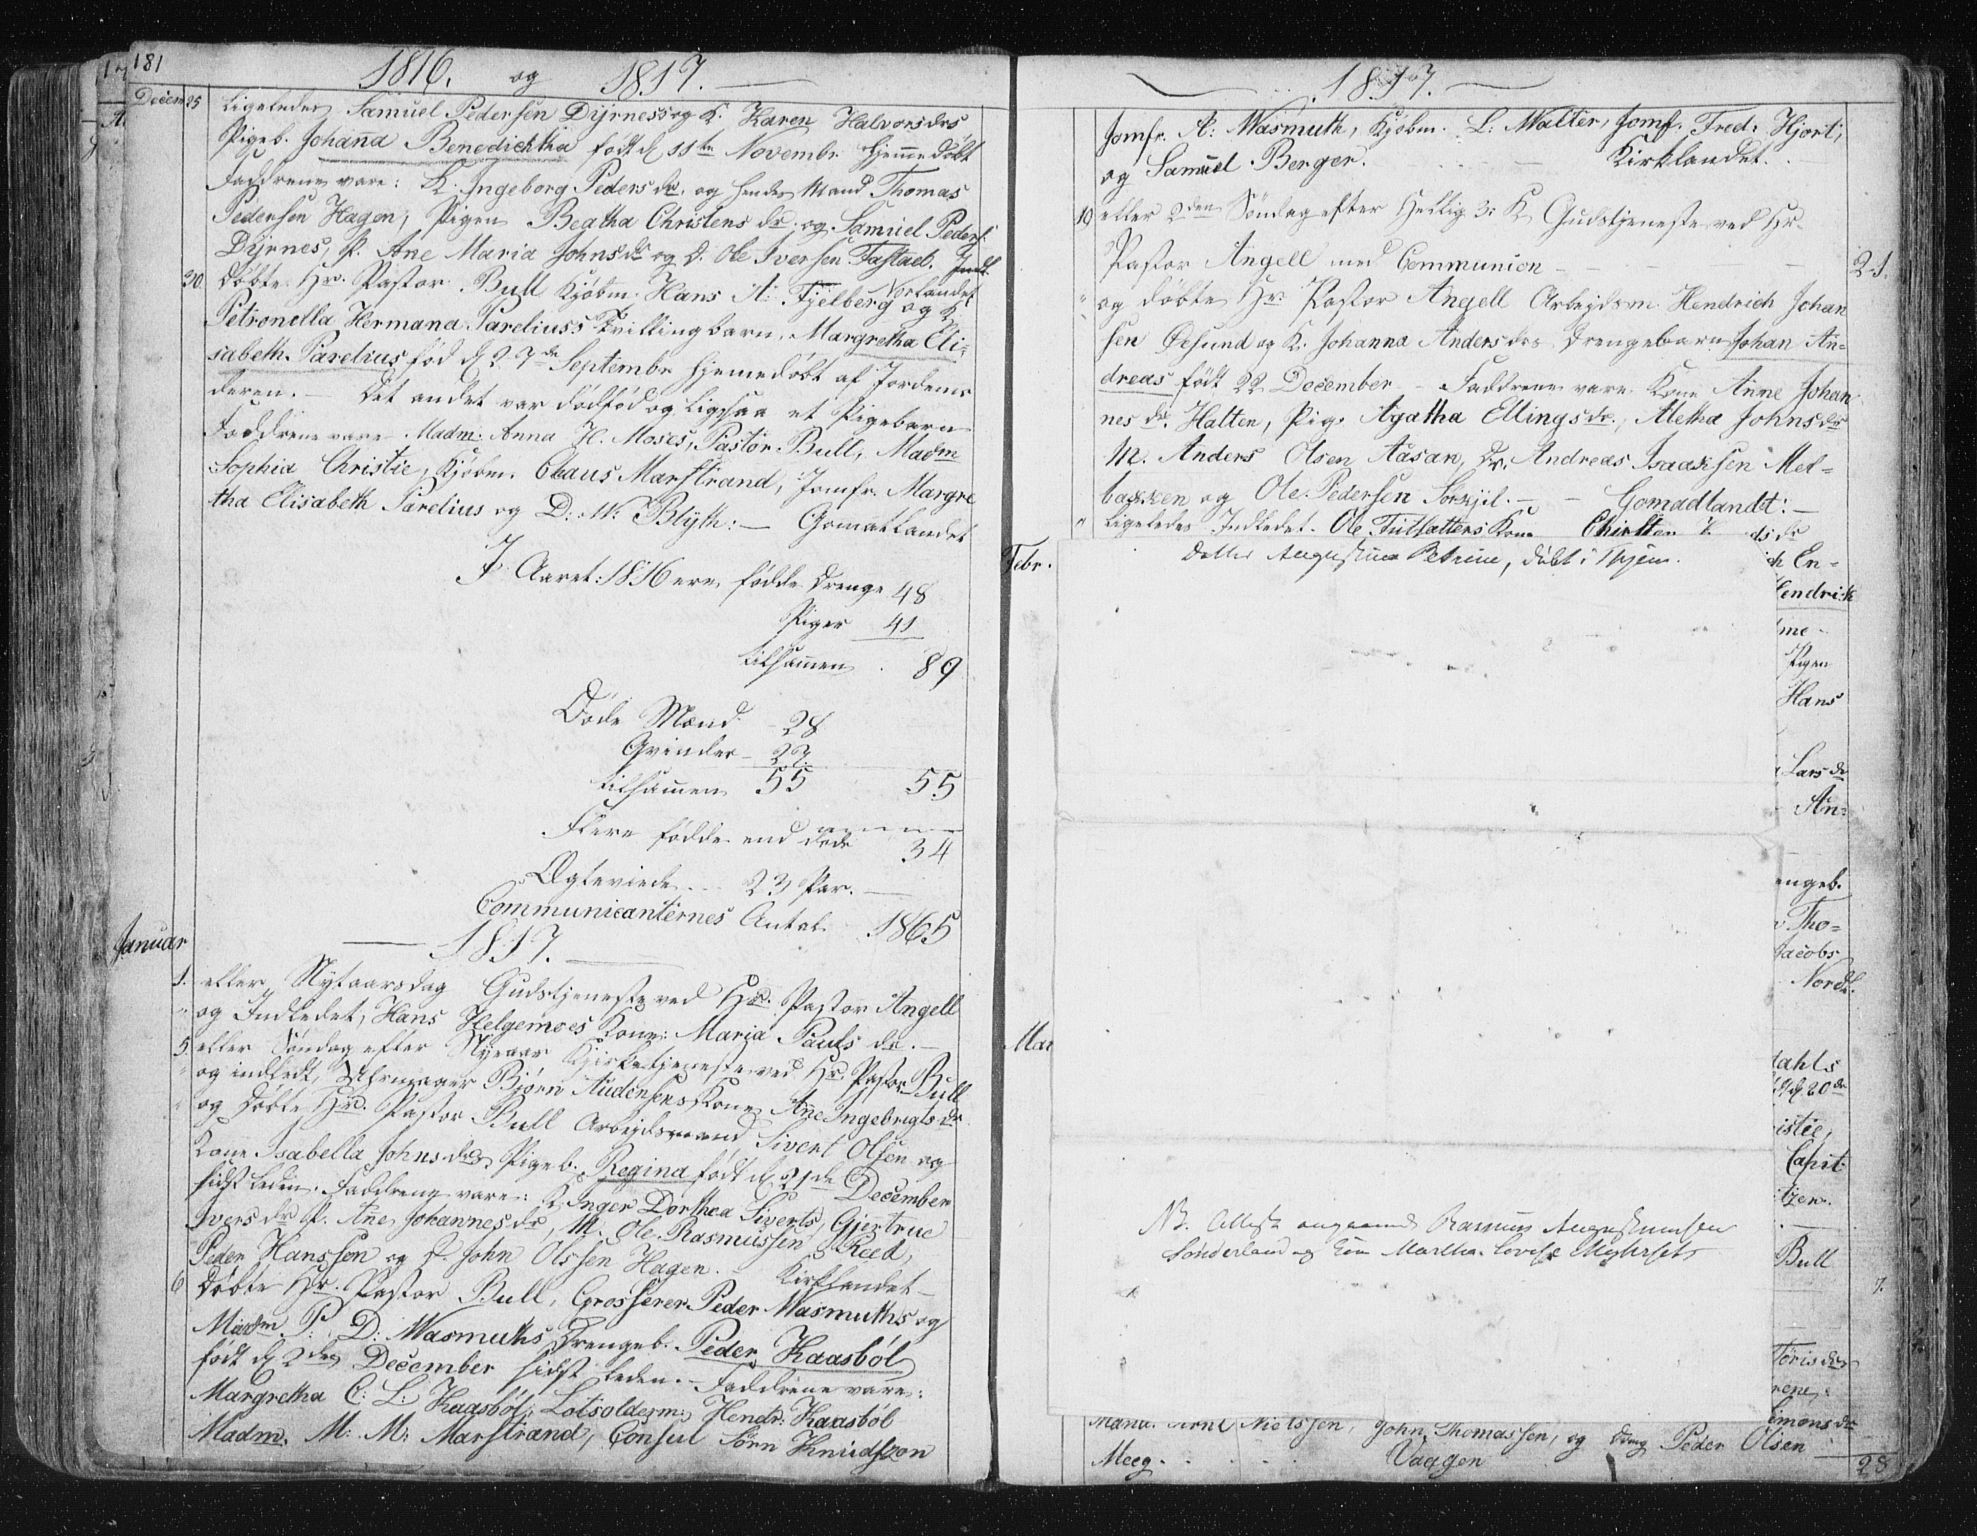 181
1816. og 1817.
Decem 25 Ligeledes Samuel Pedersen Dyrness og K. Karen Halvorsdrs
Pigeb. Johanna Benedichtha født d 11te Novembr Hjemmedøbt
Faddrene vare: K. Ingeborg Pedersdr. og hendes Mand Thomas
Pedersen Hagen, Pigen Beatha Christensdr. og Samuel Peders:
Dyrnes, P. Ane Maria Johnsdr og D. Ole Iversen Fastad.
Nordlandet
30. døbte Hr. Pastor Bull Kjøbm. Hans A: Fjelberg og K.
Petronella Hermana Pareliuss Tvillingbarn. Margretha Eli-
sabeth Parelius fød d 27de Septembr hjemmedøbt af Jordemo
deren. – Det andet var dødfød og ligesaa et Pigebarn
Faddrene vare Madm: Anna H. Moses, Pastor Bull, Madm
Sophia Christie, Kjøbm. Claus Marstrand, Jomfr. Margre
tha Elisabeth Parelius og D: W: Blyth: – Gomatlandet
I Aaret: 1816 ere fødde Drenge 48
Piger 41
tilsamen 89
Døde Mænd 28
Qvinder – 27.
tilsamen 55 55
Flere fødde end døde 34
Ægteviede 23 Par. –
Communicanternes Antal 1865
– 1817. –
Januar
1. eller Nytaarsdag Gudstjeneste ved Hr. Pastor Angell
" og Indledet, Hans Helgemoes Kone: Maria Pauls dr. –
5 eller Søndag efter Nyeaar Kirketjeneste ved Hr. Pastor Bull
" og indledt, Uhrmager Bjørn Audensens Kone Ane Ingebrigtsdr
" og døbte Hr. Pastor Bull Arbejdsmand Sivert Olsen og
Kone Isabella Johnsdrs Pigeb. Regina født d 21de December
sidst leden. Faddrene vare: K. Inger Dorthea Siverts, Gjertrue
Iversdr P. Ane Johannesdr, M. Ole Rasmussen Reed,
Peder Hanssen og D. John Olssen Hagen. Kirklandet –
6 døbte Hr. Pastor Bull, Grosserer Peder Wasmuths og
Madm. P: D: Wasmuths Drengeb. Peder Kaasbøl
født d 2den December sidst leden. – Faddrene vare:
Margretha C: L: Kaasbøl, Lotsolderm: Hendr: Kaasbøl
Madm. M: M: Marstrand, Consul Sörn Knudtzon
1817.
Jomfr. A: Wasmuth, Kjøbm. L: Walter, Jomf. Fred: Hjort,
og Samuel Berger. Kirklandet.
10 eller 2den Søndag efter Hellig 3: K Gudstjeneste ved Hr.
Pastor Angell med Communion – 21.
" og døbte Hr Pastor Angell Arbejdsm. Hendrich Johan
sen Øesund og K. Johanna Andersdrs Drengebarn Johan An-
dreas født 22 December – Faddrene vare Kone Anne Johan
nes dr. Halten, Pig. Agatha Ellingsdr., Aletha Johnsdr
M. Anders Olsen Aasan, Dr. Andreas Isaachsen Met-
backen og Ole Pedersen – Gomadlandet: –
" Ligeledes Indledet. Ole Kone ds dr
Febr. Augustinus Petrine, døbt i Hjem.
ch En-
Hendrich
Pigen
Hans
Lars dr
An-
engeb.
Tho-
Jacobs
Nordl.
Mar
dahls
20de
istie,
Capit:
tzen.
NB. Attest angaaende Rasmus Augustinussen
Sønderland og Martha Lovise
Bull
7.
Toris drs
rene:
imons dr
Mand. Arnt Nielssen, John Thomassen, og Dreng Peder Olsen
Meeg. Vaagen 28